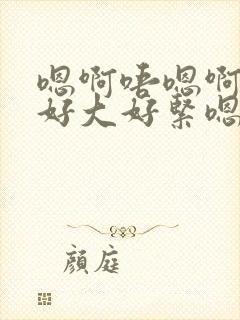 嗯啊唔嗯啊
好大好紧嗯
颜庭